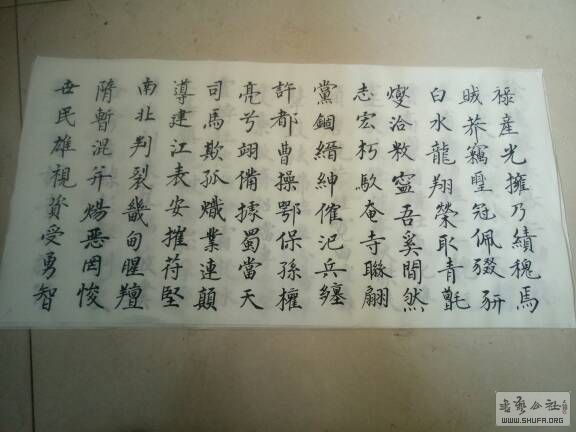 祿産光擁乃績馬
賊莽竊璽冠佩綴研
白水龍翔榮取青氈
燮洽敉寧吾奚間然
志宏朽馭奄寺聯翩
黨錮縉紳傕汜兵纏
許都曹操鄂保孫權
亮兮翊備據蜀當天
司馬欺孤熾業連顛
導建江表安摧苻堅
南北判裂畿甸腥羶
隋暫混并煬惡罔悛
世民雄視資受勇智
書藝公社
WWW.SHUFA.ORG